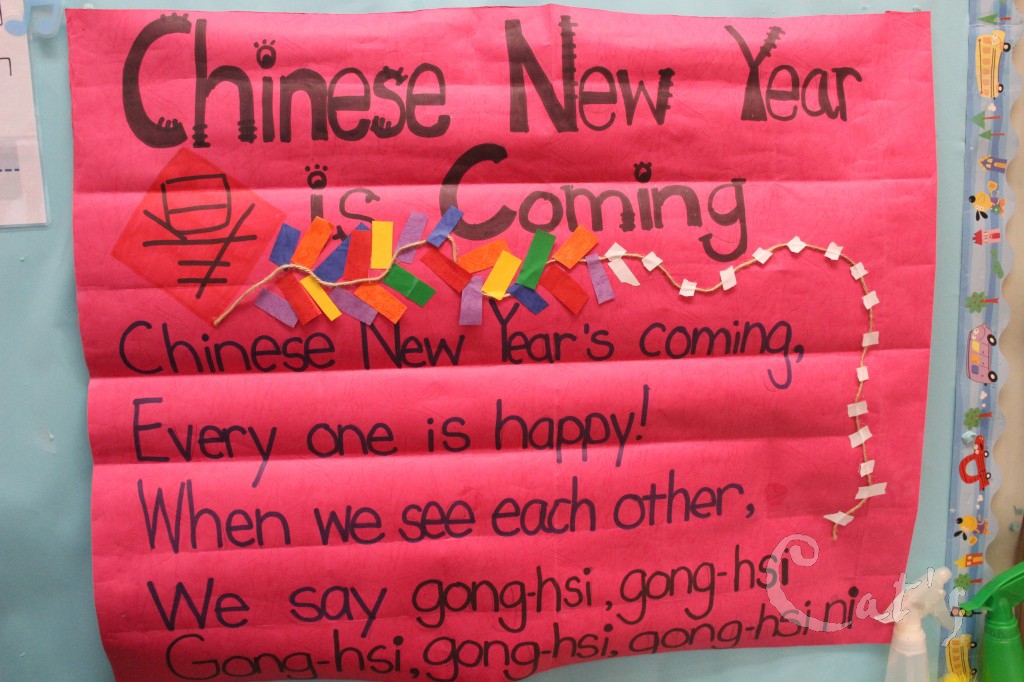 Chinese New Year
is Coming
Chinese New Year's coming,
Every one is happy!
When we see each other,
We say gong-hsi, gong-hsi
Gong-hsi, gong-hsi, gong-hsi ni
Cat's